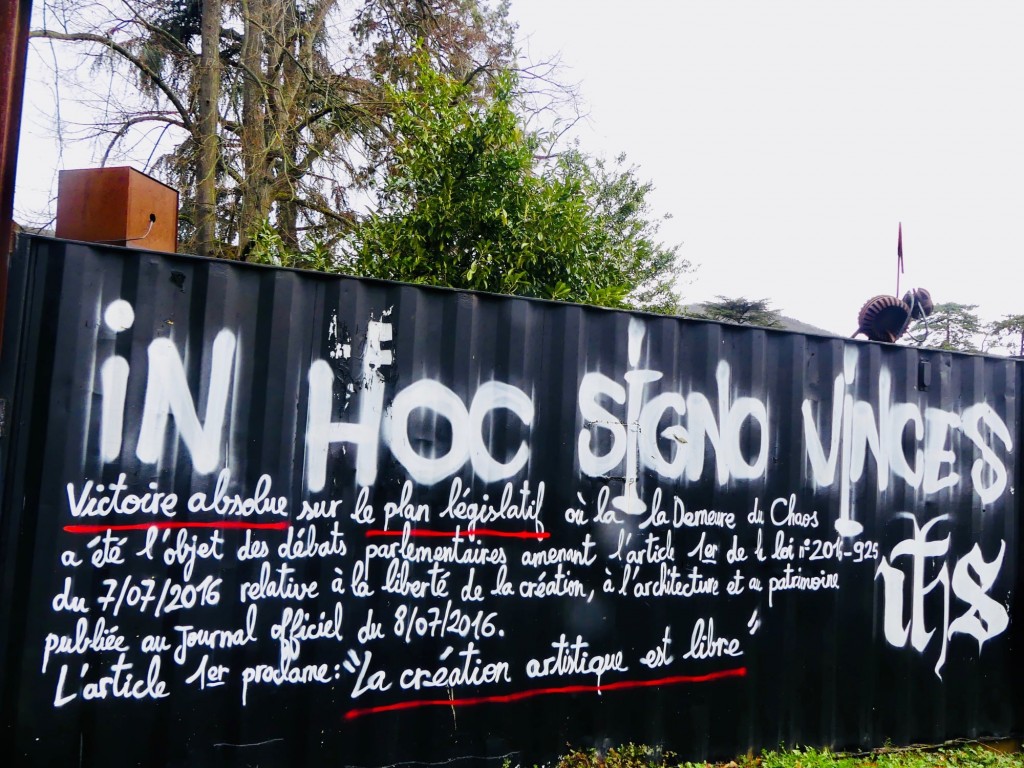 iN HOC SIGNO VINCES
Victoire absolue sur le plan législatif où la la Demeure du Chaos
a été l'objet des débats parlementaires amenant l'article 1er de le loi n°2016-925
du 7/07/2016 relative à la liberté de la création, à l'architecture et au patrimoine
publiée au Journal officiel du 8/07/2016.
L'article 1er proclame: "La création artistique est libre"
ihs